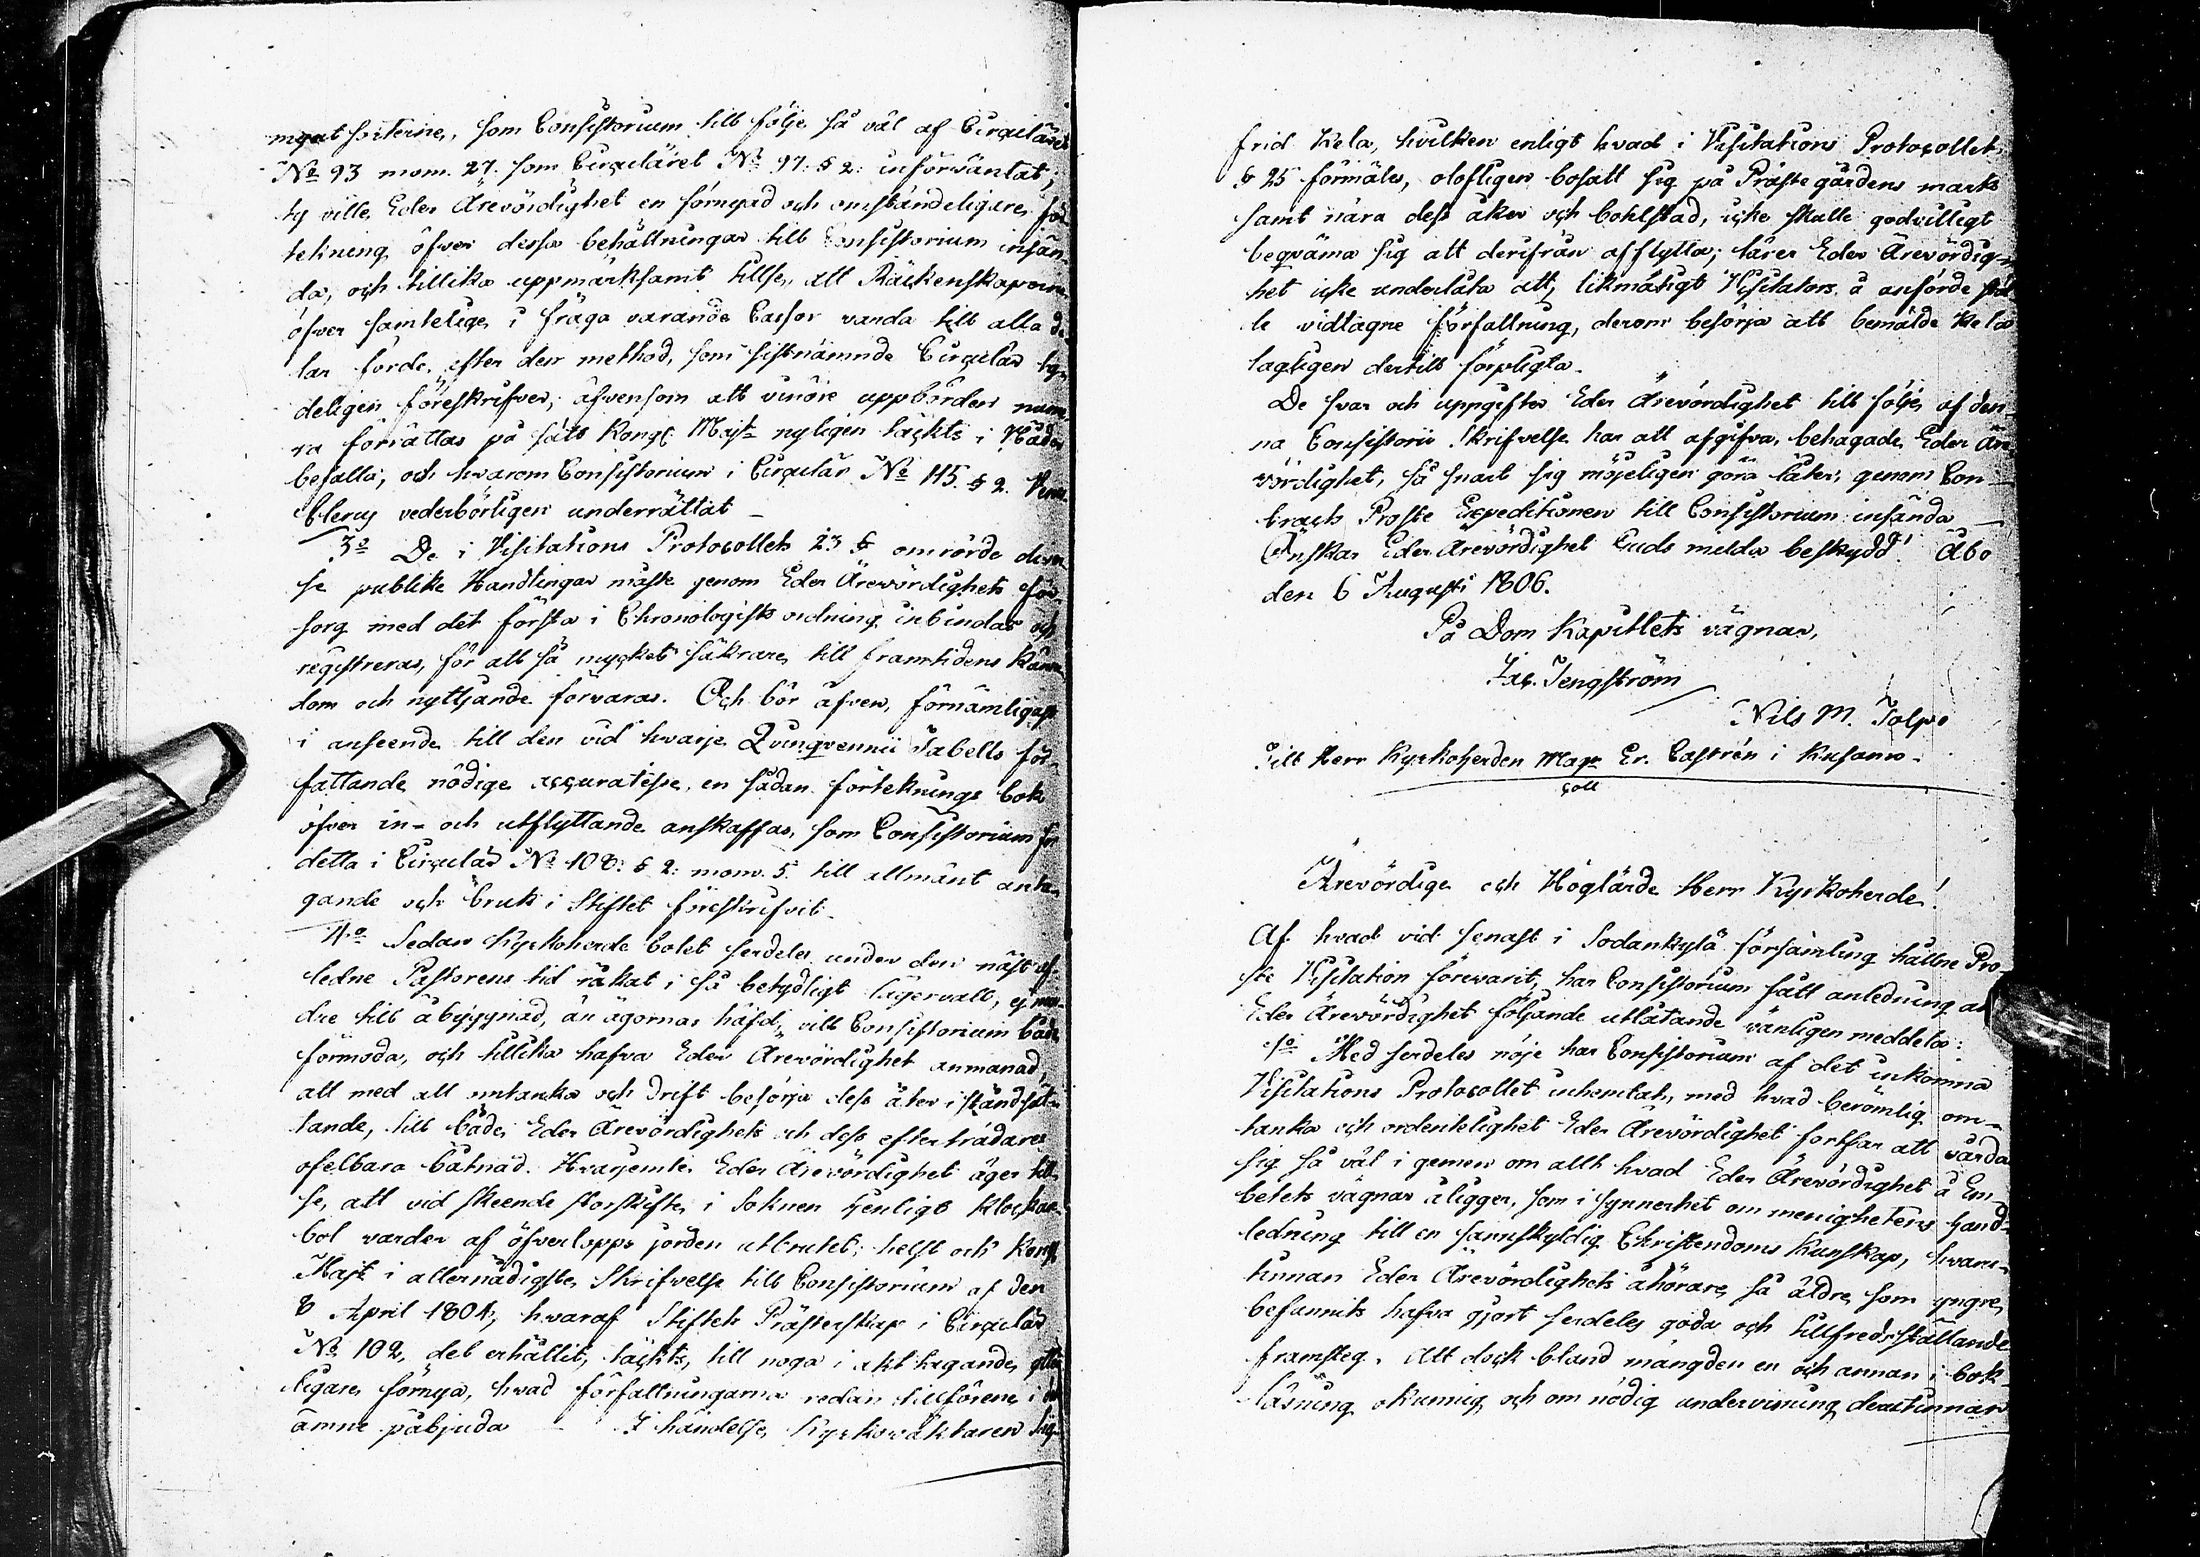 som Consistorium till följe så väl af Circuläret
No 93 mom. 27. som Circuläret No 97. § 2: införväntat;
ty ville Eder Ärevördighet en förnyad och omständeligare för
tekning öfver dessa behållningar till Consistorium insän-
da, och tillika uppmärksamt tillse, att Räkenskaperne
öfver samtelige i fråga varande Cassor varda till alla de
lar förde, efter den method, som sistnämnde Circulär ty-
deligen föreskrifver; äfvensom att vinöre uppbörden
ra förrättas på sätt Kongl. Majt nyligen täckts i Nåder
befalla, och hvarom Consistorium i Circulär No 115. § 2. Vener.
Clerus vederbörligen underrättat _
3o De i Visitations Protocollets 23 § omrörde diver
se publike Handlingar måste genom Eder Ärevördighets för-
sorg med det första i Chronologisk ordning inbindas och
registreras, för att så mycket säkrare till framtidens känne
dom och nyttjande förvaras. Och bör äfven, förnämligast
i anseende till den vid hvarje Qvinqvennii Tabells för-
fattande nödige accuratesse, en sådan förteknings bok
öfver in- och utflyttande anskaffas, som Consistorium för
detta i Circulär No 108: § 2: mom. 5. till allmänt anta-
gande och bruk i Stiftet föreskrifvit.
4o Sedan Kyrkoherde bolet serdeles under den näst af-
ledne Pastorens tid råkat i så betydligt lägervall, ej min-
dre till åbyggnad, än ägornas häfd, vill Consistorium både
förmoda, och tillika hafva Eder Ärevördighet anmanad,
att med all omtanka och drift besörja dess åter i ståndsät-
tande, till både Eder Ärevördighets och dess efterträdares
ofelbara båtnad. Hvarjemte Eder Ärevördighet äger till-
se, att vid skeende storskifte i Soknen tjenligt Klockare
bol varder af öfverlopps jorden utbrutet; helst och Kongl.
Majt i allernådigste Skrifvelse till Consistorium af den
8 April 1804, hvaraf Stiftets Prästerskap i Circulär
No 102, del erhållit, täckts, till noga i akt tagande, ytter
ligare förnya, hvad författningarna redan tillförene i
ämne påbjuda _ I händelse, Kyrkoväktaren Sig-
frid Kela, hvilken enligt hvad i Visitations Protocollets
§ 25 förmäles, olofligen bosatt sig på Prästegårdens mark
samt nära dess åker och bohlstad, icke skulle godvilligt
beqväma sig att derifrån afflytta; lärer Eder Ärevördig-
het icke underlåta att, likmätigt Visitators å anförde stäl
le vidtagne författning, derom besörja att bemälde Kela
lagligen dertill förpligta.
De svar och uppgifter Eder Ärevördighet till följe af den-
na Consistorii Skrifvelse har att afgifva, behagade Eder Äre
vördighet, så snart sig möjeligen göra låter, genom Con-
tracts Proste Expeditionen till Consistorium insända _
Önskar Eder Ärevördighet Guds milda beskydd! Åbo
den 6 Augusti 1806.
På Dom Kapitlets vägnar,
Jac. Tengström
Nils M. Tolpo
Till Herr Kyrkoherden Mag. Er. Castrén i Kusamo.
coll
Ärevördige och Höglärde Herr Kyrkoherde!
Af hvad vid senast i Sodankylä församling hållne Pro-
ste Visitation förevarit, har Consistorium fått anledning att
Eder Ärevördighet följande utlåtande vänligen meddela:
1o Med serdeles nöje har Consistorium af det inkomna
Visitations Protocollet inhemtat, med hvad berömlig om-
tanka och ordentelighet Eder Ärevördighet fortfar att vårda
sig så väl i gemen om allt hvad Eder Ärevördighet å Em
betets vägnar åligger, som i synnerhet om menighetens hand-
ledning till en sannskyldig Christendoms Kunskap, hvaru-
tinnan Eder Ärevördighets åhörare, så äldre som yngre,
befunnits hafva gjort serdeles goda och tillfredsställande
framsteg. Att dock bland mängden en och annan i bok-
läsning okunnig och om nödig undervisning derutinnan